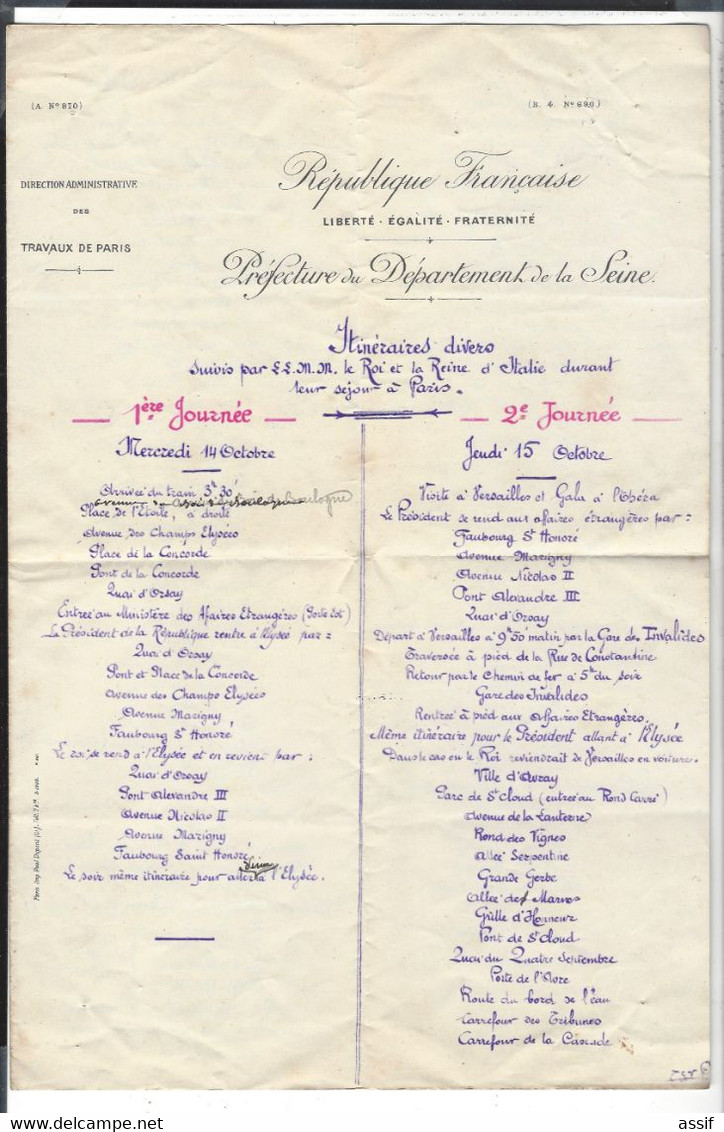 (A. Nº 870)
(B. 4. Nº 690)
DIRECTION ADMINISTRATIVE
DES
TRAVAUX DE PARIS
République Française
LIBERTÉ · ÉGALITÉ · FRATERNITÉ
Préfecture du Département de la Seine.
Itinéraires divers
suivis par LL.M.M. le Roi et la Reine d'Italie durant
leur séjour à Paris.
1ère Journée
Mercredi 14 Octobre
Arrivée du train 3h 30'
Boulogne
Place de l'Etoile, à droite
Avenue des Champs Elysées
Place de la Concorde
Pont de la Concorde
Quai d'Orsay
Entrée au Ministère des Affaires Etrangères (Porte Est)
Le Président de la République rentre à l'Elysée par :
Quai d'Orsay
Pont et Place de la Concorde
Avenue des Champs Elysées
Avenue Marigny
Faubourg St Honoré
Le roi se rend à l'Elysée et en revient par :
Quai d'Orsay
Pont Alexandre III
Avenue Nicolas II
Avenue Marigny
Faubourg Saint Honoré
Le soir même itinéraire pour aller à l'Elysée.
2e Journée
Jeudi 15 Octobre
Visite à Versailles et Gala à l'Opéra
Le Président se rend aux affaires étrangères par :
Faubourg St Honoré
Avenue Marigny
Avenue Nicolas II
Pont Alexandre III
Quai d'Orsay
Départ à Versailles à 9h50 matin par la Gare des Invalides
Traversée à pied de la Rue de Constantine
Retour par le Chemin de fer à 5h du soir
Gare des Invalides
Rentrée à pied aux Affaires Etrangères.
Même itinéraire pour le Président allant à l'Elysée
Dans le cas ou le Roi reviendrait de Versailles en voiture.
Ville d'Avray
Parc de St Cloud (entrée au Rond Carré)
Avenue de la Lanterne
Rond des Vignes
Allée Serpentine
Grande Gerbe
Allée de Marnes
Grille d'Honneur
Pont de St Cloud
Quai du Quatre Septembre
Porte de l'Hore
Route du bord de l'eau
Carrefour des Tribunes
Carrefour de la Cascade
assif